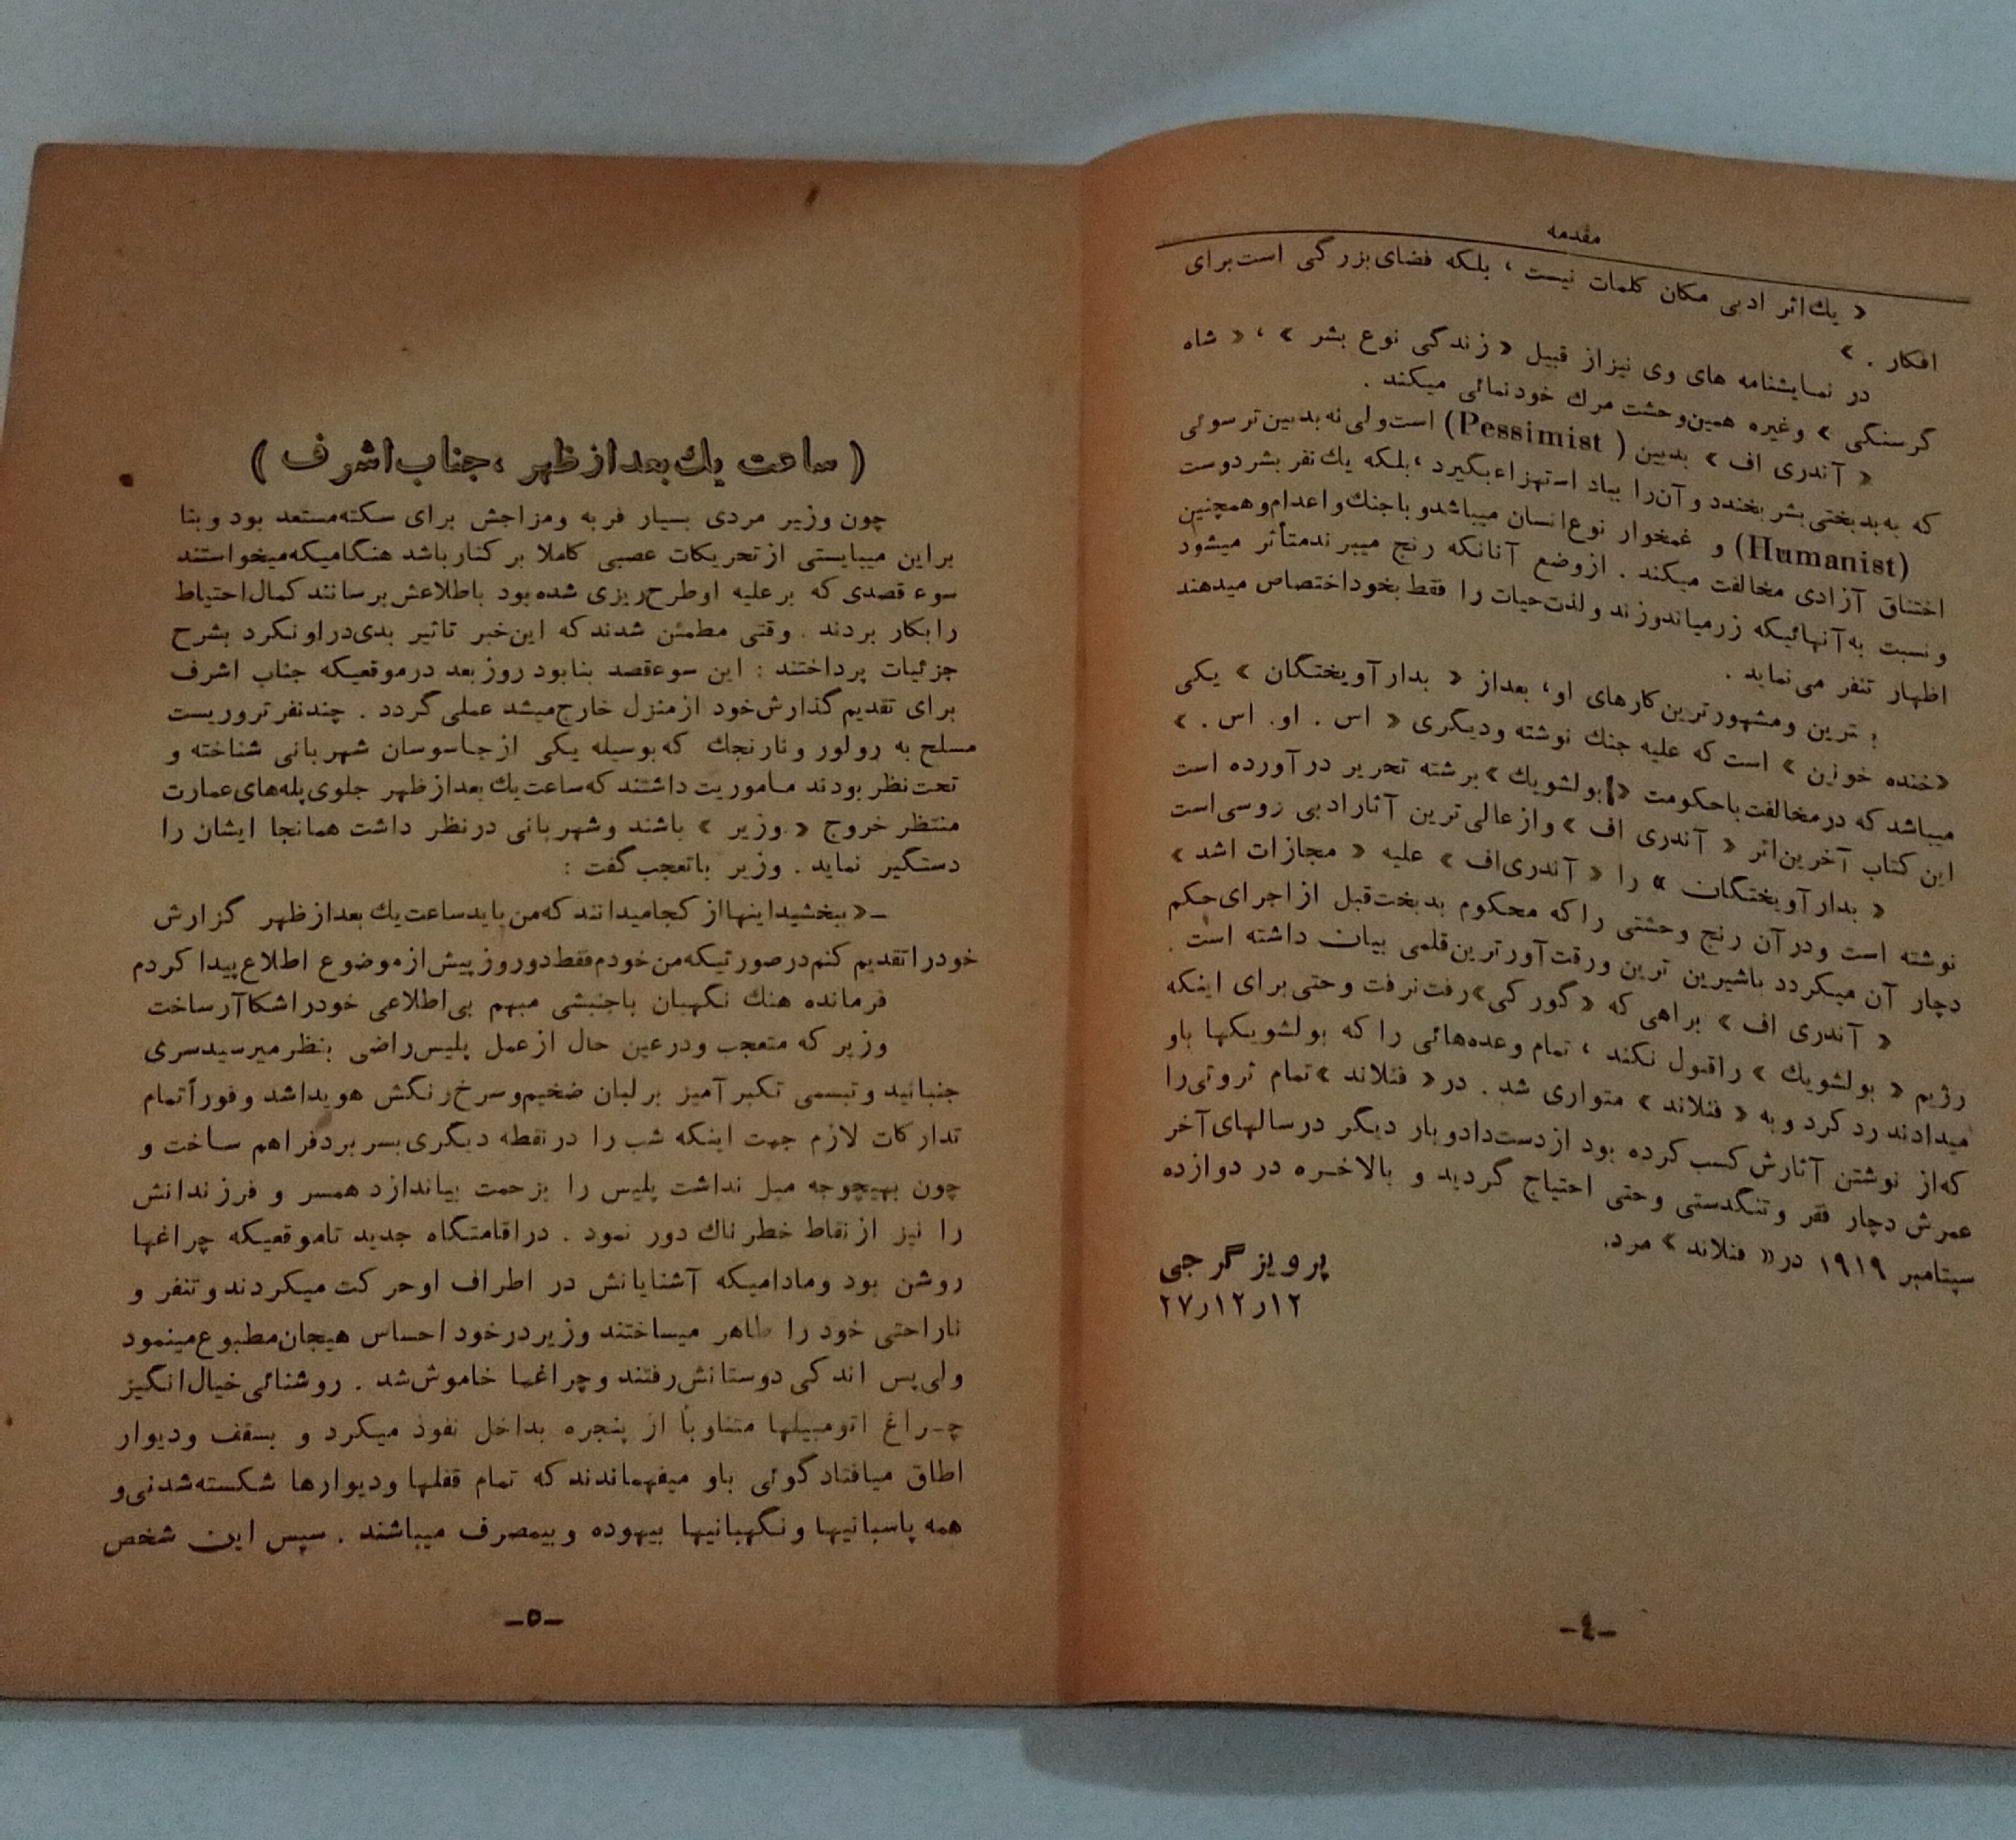 مقدمه
« یك‌اثر ادبی مکان کلمات نیست ، بلکه فضای‌بزرگی است‌برای
افکار . »
در نمایشنامه های وی نیز‌از قبیل « زندگی نوع بشر » ، « شاه
گرسنگی » وغیره همین‌وحشت مرك خودنمائی میکند .
« آندری اف » بدبین ( Pessimist) است‌ولی‌نه‌بدبین‌تر‌سوئی
که به‌بدبختی‌بشر‌بخندد و‌آن‌را بباد استهزاء‌بگیرد ،‌بلکه یك‌نفر بشردوست
(Humanist) و غمخوار نوع‌انسان میباشد‌و با‌جنك‌و‌اعدام‌و‌همچنین
اختناق آزادی مخالفت میکند . از‌وضع آنانکه رنج میبرند‌متأثر میشود
و‌نسبت به‌آنهائیکه زر‌میاندوزند و‌لذت‌حیات را فقط‌بخود‌اختصاص میدهند
اظهار تنفر می‌نماید .
ترین و‌مشهورترین‌کارهای او، بعد‌از « بدار‌آویختگان » یکی
«خنده خونین » است‌که علیه جنك نوشته ودیگری « اس . او. اس . »
میباشد‌که در‌مخالفت‌با‌حکومت «بولشویك»‌برشته تحریر در‌آورده است
این کتاب آخرین‌اثر « آندری اف » و‌از‌عالی‌ترین آثار‌ادبی روسی‌است
« بدار‌آویختگان » را « آندری‌اف » علیه « مجازات اشد »
نوشته است ودر‌آن رنج وحشتی را‌که محکوم بدبخت‌قبل از‌اجرای‌حکم
دچار آن میکردد باشیرین ترین ورقت‌آورترین‌قلمی بیان داشته است .
« آندری اف » براهی که « گورکی»‌رفت‌نرفت و‌حتی‌برای اینکه
رژیم « بولشویك » راقبول نکند ، تمام وعده‌هائی را که بولشویکها باو
میدادند رد کرد و‌به « فنلاند » متواری شد . در« فنلاند »‌تمام ثروتی‌را
که‌از نوشتن آثارش کسب‌کرده بود از‌دست‌داد‌و‌بار دیگر در‌سالهای‌آخر
عمرش دچار فقر و‌تنگدستی و‌حتی احتیاج گردید و بالاخره در دوازده
سپتامبر ۱۹۱۹ در« فنلاند » مرد.
پرویز گرجی
۱۲ر۱۲ر۲۷
-٤-
( ساعت یك بعد‌از ظهر ، جناب‌اشرف )
چون وزیر مردی بسیار فربه و‌مزاجش برای سکته‌مستعد بود و‌بنا
براین میبایستی از‌تحریکات عصبی کاملا بر کنار‌باشد هنگامیکه‌میخواستند
سوء قصدی که بر‌علیه او‌طرح‌ریزی شده‌بود با‌طلاعش‌برسانند کمال‌احتیاط
را‌بکار بردند . و‌قتی مطمئن شدند‌که این‌خبر تاثیر بدی‌در‌او‌نکرد بشرح
جزئیات پرداختند : این سوء‌قصد بنا‌بود روز‌بعد در‌موقعیکه جناب اشرف
برای تقدیم گذارش‌خود از‌منزل خارج‌میشد عملی‌گردد . چند‌نفر‌تروریست
مسلح به رولور و‌نارنجك که‌بوسیله یکی از‌جاسوسان شهربانی شناخته و
تحت‌نظر‌بودند مأموریت داشتند که‌ساعت‌یك بعد‌از‌ظهر جلوی‌پله‌های‌عمارت
منتظر خروج « وزیر » باشند و‌شهربانی در‌نظر داشت همانجا ایشان را
دستگیر نماید . وزیر با‌تعجب‌گفت :
-« ببخشید‌اینها‌از کجا‌میدانند که‌من باید‌ساعت‌یك بعد‌از‌ظهر گزارش
خودرا‌تقدیم کنم‌در‌صورتیکه‌من‌خودم‌فقط‌دو‌روز‌پیش‌از‌موضوع اطلاع‌پیدا کردم
فرمانده هنك نگهبان با‌جنبشی مبهم بی‌اطلاعی خودرا‌شکاآر‌ساخت
وزیر که متعجب ودر‌عین حال از‌عمل پلیس‌راضی بنظر‌میرسید‌سری
جنبانید و‌تبسمی تکبر‌آمیز بر‌لبان ضخیم‌و‌سرخ‌رنگش هویدا‌شد و‌فوراً‌تمام
تدارکات لازم جهت اینکه شب را در‌نقطه دیگری‌بسر‌برد‌فراهم ساخت و
چون بهیچوجه میل نداشت پلیس را بزحمت بیاندازد همسر و فرزندانش
را نیز از‌نقاط خطر‌ناك دور نمود . در‌اقامتگاه جدید تا‌موقعیکه چراغها
روشن بود و‌مادامیکه آشنایانش در اطراف او‌حرکت میکردند و‌تنفر و
ناراحتی خود را ظاهر میساختند وزیر‌در‌خود احساس هیجان‌مطبوع‌مینمود
ولی‌پس اندکی دوستانش‌رفتند و‌چراغها خاموش‌شد . روشنائی‌خیال‌انگیز
چراغ اتومبیلها متناوباً از پنجره بداخل نفوذ میکرد و بسقف ودیوار
اطاق میافتاد‌گوئی باو میفهماندند که تمام قفلها و‌دیوارها شکسته‌شدنی‌و
همه پاسبانیها و‌نگهبانیها بیهوده و‌بیمصرف میباشند . سپس این شخص
-۵-